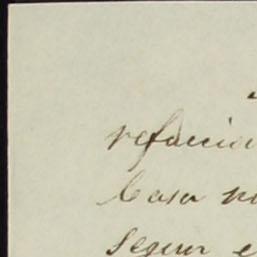 refaccio
Casa n
segun e